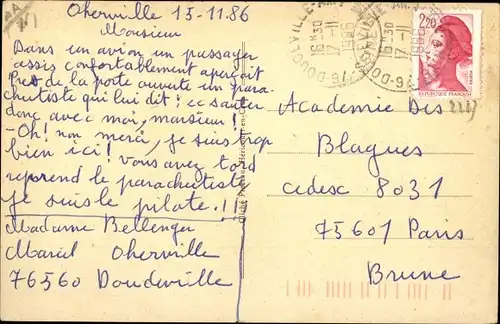 Oherville 15-11.86
Monsieur
Dans un avion un passager
assis confortablement aperçoit
Près de la porte ouverte un para
chutiste qui lui dit: << sauter
donc avec moi, monsieur!
-Oh! non merci, je suis trop
bien ici! vous avez tord
reprend le parachutiste
je suis le pilote.!!
Madame Bellenger
Marcel Oherville
76560 Doudeville
16H30
17-11
1986
16H30
17-11
1986
2,20
REPUBLIQUE FRANÇAISE
Academie Des
Blagues
Cedesc 8031
75601 Paris
Brune